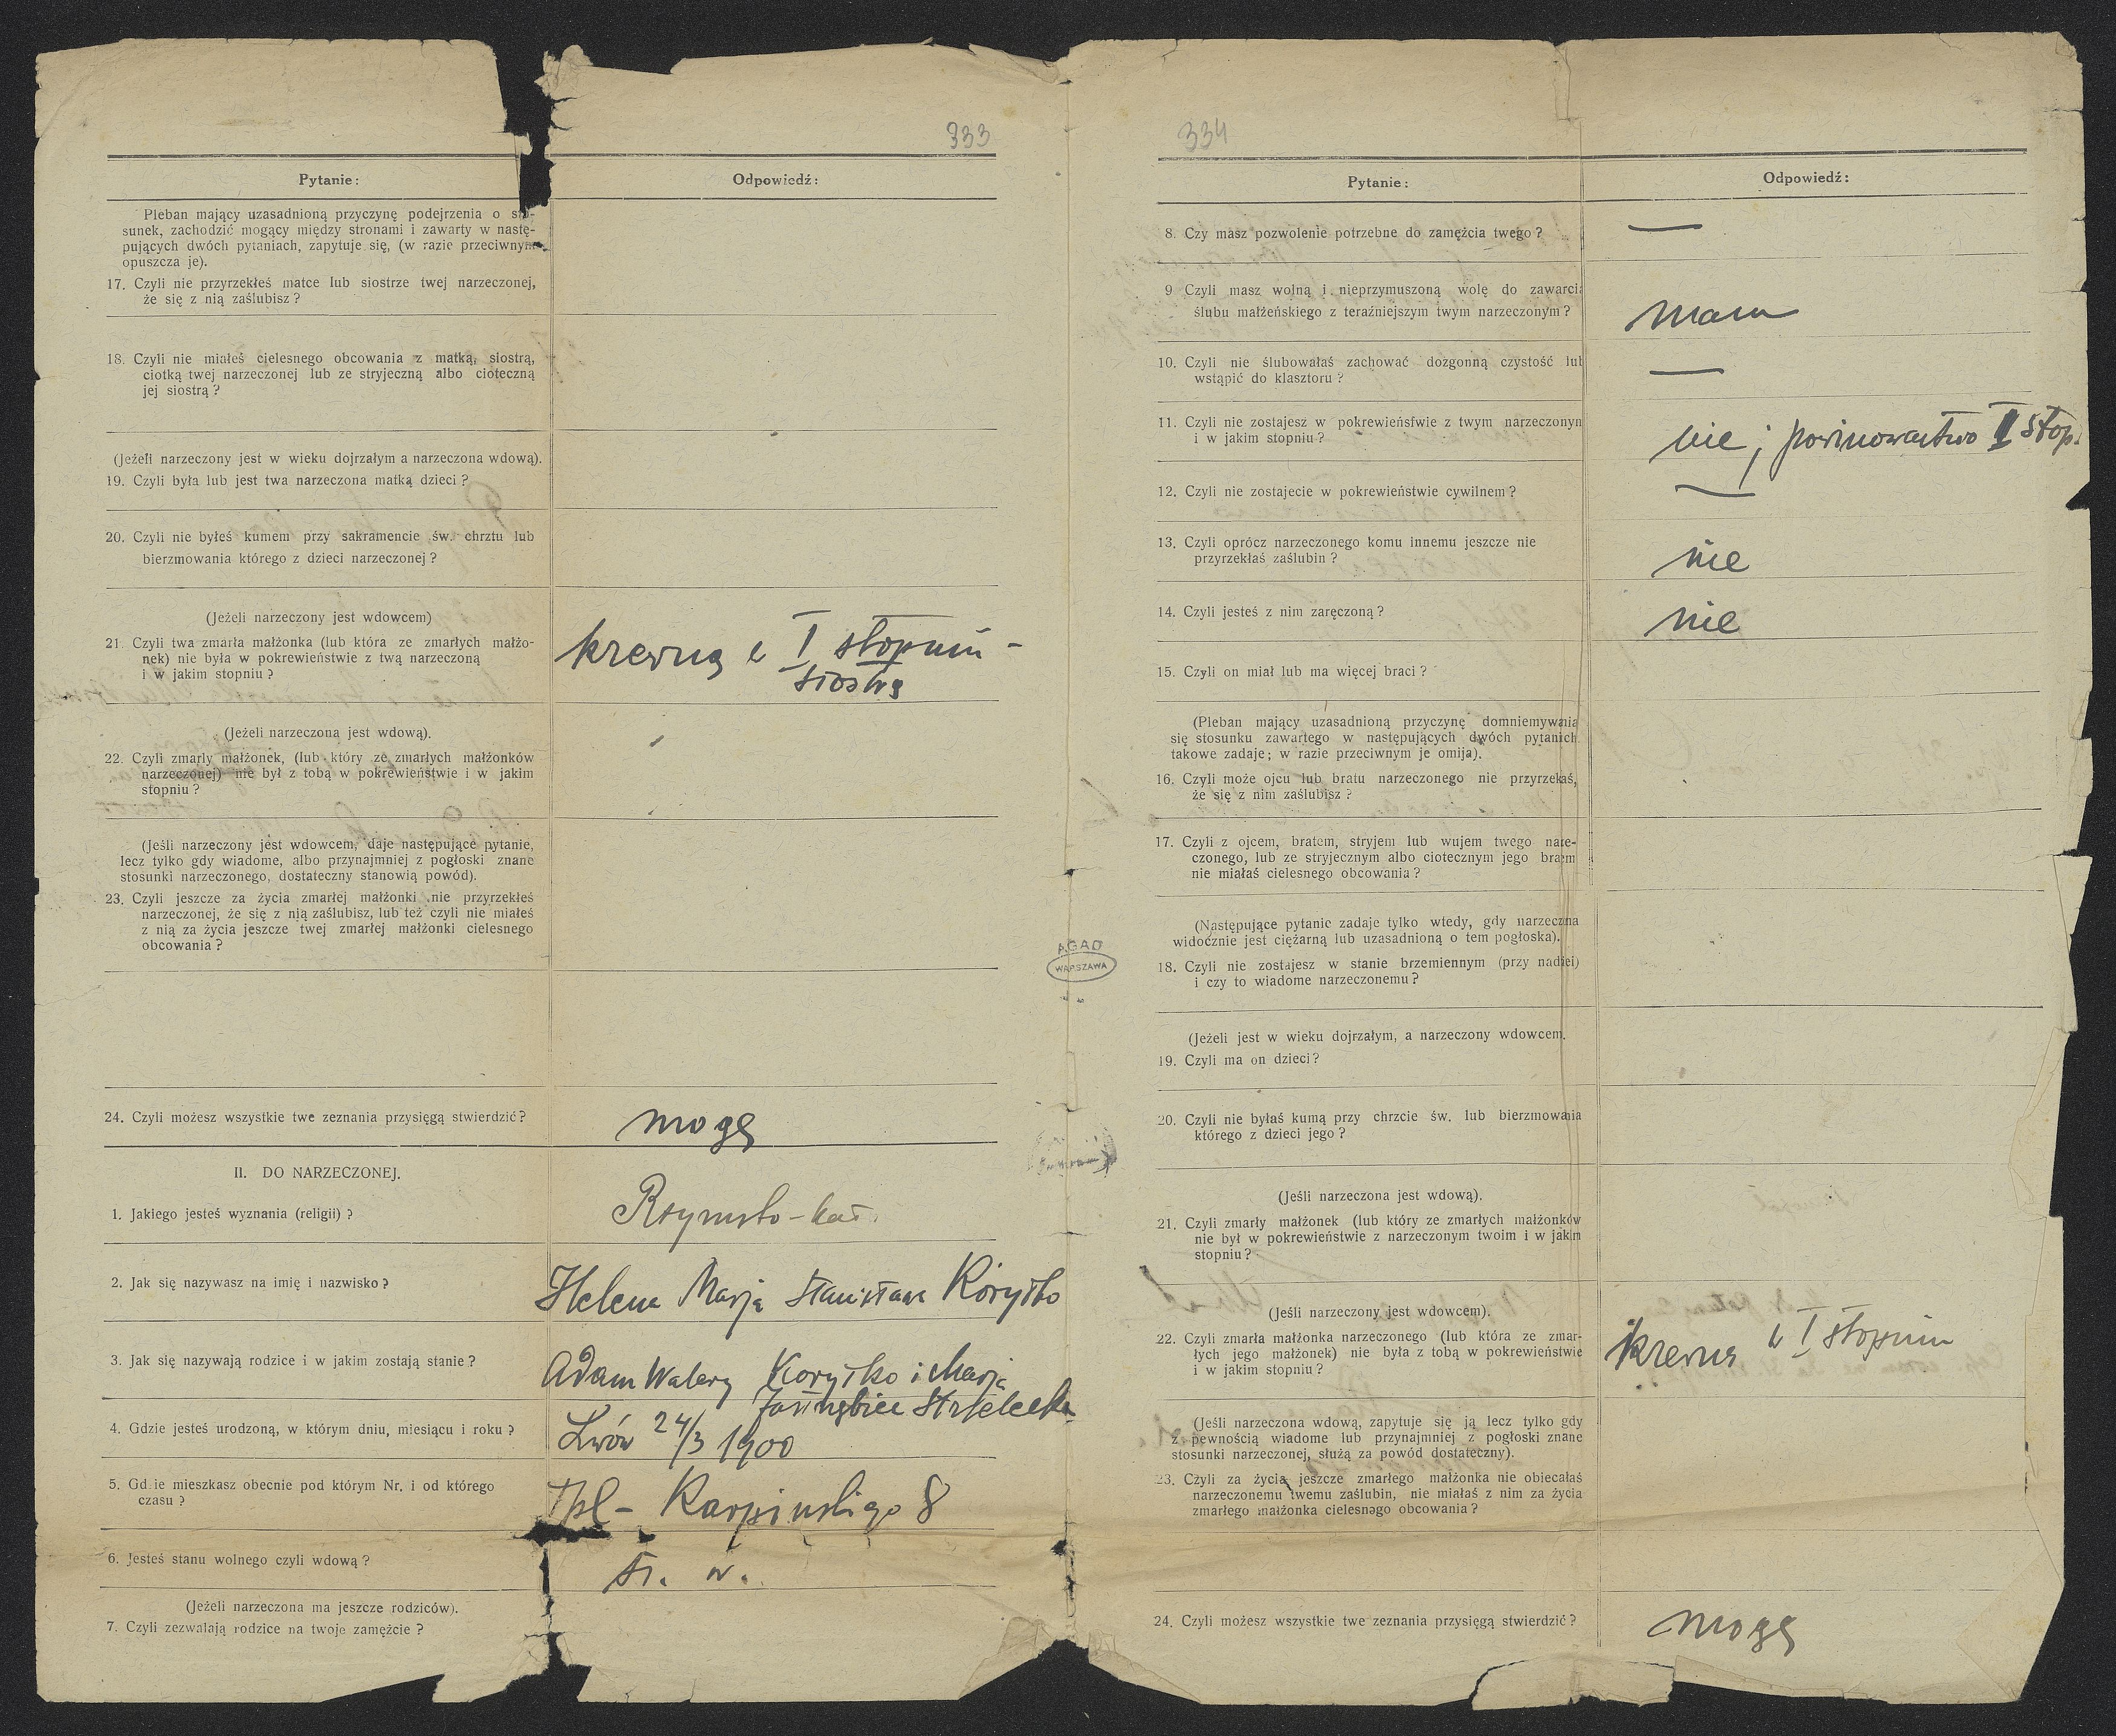 333
Pytanie:
Odpowiedź:
Pleban mający uzasadnioną przyczynę podejrzenia o sto-
sunek, zachodzić mogący między stronami i zawarty w nastę-
pujących dwóch pytaniach, zapytuje się, (w razie przeciwnym
opuszcza je).
17. Czyli nie przyrzekłeś matce lub siostrze twej narzeczonej,
że się z nią zaślubisz?
18. Czyli nie miałeś cielesnego obcowania z matką, siostrą,
ciotką twej narzeczonej lub ze stryjeczną albo cioteczną
jej siostrą?
(Jeżeli narzeczony jest w wieku dojrzałym a narzeczona wdową).
19. Czyli była lub jest twa narzeczona matką dzieci?
20. Czyli nie byłeś kumem przy sakramencie św. chrztu lub
bierzmowania którego z dzieci narzeczonej?
(Jeżeli narzeczony jest wdowcem)
21. Czyli twa zmarła małżonka (lub która ze zmarłych małżo-
nek) nie była w pokrewieństwie z twą narzeczoną
i w jakim stopniu?
krewną w I stopniu -
siostrą
(Jeżeli narzeczona jest wdową).
22. Czyli zmarły małżonek, (lub który ze zmarłych małżonków
narzeczonej) nie był z tobą w pokrewieństwie i w jakim
stopniu?
(Jeśli narzeczony jest wdowcem, daje następujące pytanie,
lecz tylko gdy wiadome, albo przynajmniej z pogłoski znane
stosunki narzeczonego, dostateczny stanowią powód).
23. Czyli jeszcze za życia zmarłej małżonki nie przyrzekłeś
narzeczonej, że się z nią zaślubisz, lub też czyli nie miałeś
z nią za życia jeszcze twej zmarłej małżonki cielesnego
obcowania?
24. Czyli możesz wszystkie twe zeznania przysięgą stwierdzić?
mogę
II. DO NARZECZONEJ.
1. Jakiego jesteś wyznania (religii)?
Rzymsko-kat.
2. Jak się nazywasz na imię i nazwisko?
Helena Marja Stanisława Koryтko
3. Jak się nazywają rodzice i w jakim zostają stanie?
Adam Walery Korytko i Marja
Jastrzębiec Strzelecka
4. Gdzie jesteś urodzona, w którym dniu, miesiącu i roku?
Lwów 24/3 1900
5. Gdzie mieszkasz obecnie pod którym Nr. i od którego
czasu?
pl- Karpińskiego 8
6. Jesteś stanu wolnego czyli wdową?
st. w.
(Jeżeli narzeczona ma jeszcze rodziców).
7. Czyli zezwalają rodzice na twoje zamężcie?
334
Pytanie:
Odpowiedź:
8. Czy masz pozwolenie potrzebne do zamężcia twego?
—
9 Czyli masz wolną i nieprzymuszoną wolę do zawarcia
ślubu małżeńskiego z teraźniejszym twym narzeczonym?
mam
10. Czyli nie ślubowałaś zachować dozgonną czystość lub
wstąpić do klasztoru?
—
11. Czyli nie zostajesz w pokrewieństwie z twym narzeczonym
i w jakim stopniu?
nie; powinowactwo I stop.
12. Czyli nie zostajecie w pokrewieństwie cywilnem?
—
13. Czyli oprócz narzeczonego komu innemu jeszcze nie
przyrzekłaś zaślubin?
nie
14. Czyli jesteś z nim zaręczoną?
nie
15. Czyli on miał lub ma więcej braci?
(Pleban mający uzasadnioną przyczynę domniemywania
się stosunku zawartego w następujących dwóch pytanich
takowe zadaje; w razie przeciwnym je omija).
16. Czyli może ojcu lub bratu narzeczonego nie przyrzekaś,
że się z nim zaślubisz?
17. Czyli z ojcem, bratem, stryjem lub wujem twego narze-
czonego, lub ze stryjecznym albo ciotecznym jego bratem
nie miałaś cielesnego obcowania?
(Następujące pytanie zadaje tylko wtedy, gdy narzeczona
widocznie jest ciężarną lub uzasadnioną o tem pogłoska).
18. Czyli nie zostajesz w stanie brzemiennym (przy nadziei)
i czy to wiadome narzeczonemu?
(Jeżeli jest w wieku dojrzałym, a narzeczony wdowcem.
19. Czyli ma on dzieci?
20. Czyli nie byłaś kumą przy chrzcie św. lub bierzmowania
którego z dzieci jego?
(Jeśli narzeczona jest wdową).
21. Czyli zmarły małżonek (lub który ze zmarłych małżonków
nie był w pokrewieństwie z narzeczonym twoim i w jakim
stopniu?
(Jeśli narzeczony jest wdowcem).
22. Czyli zmarła małżonka narzeczonego (lub która ze zmar-
łych jego małżonek) nie była z tobą w pokrewieństwie
i w jakim stopniu?
krewna w I stopniu
(Jeśli narzeczona wdową, zapytuje się ją lecz tylko gdy
z pewnością wiadome lub przynajmniej z pogłoski znane
stosunki narzeczonej, służą za powód dostateczny).
23. Czyli za życia jeszcze zmarłego małżonka nie obiecałaś
narzeczonemu twemu zaślubin, nie miałaś z nim za życia
zmarłego małżonka cielesnego obcowania?
24. Czyli możesz wszystkie twe zeznania przysięgą stwierdzić?
mogę
AGAD
WARSZAWA